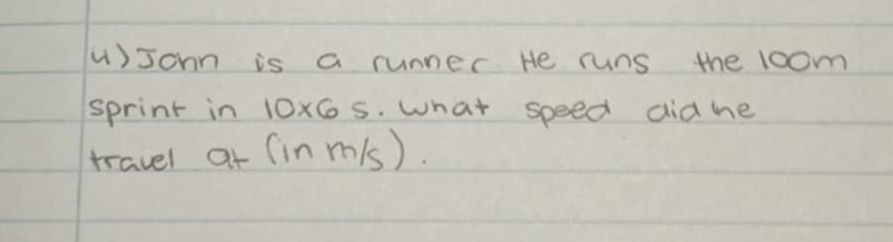 4) John is a runner. He runs the 100m
sprint in 10x6 s. What speed did he
travel at (in m/s).